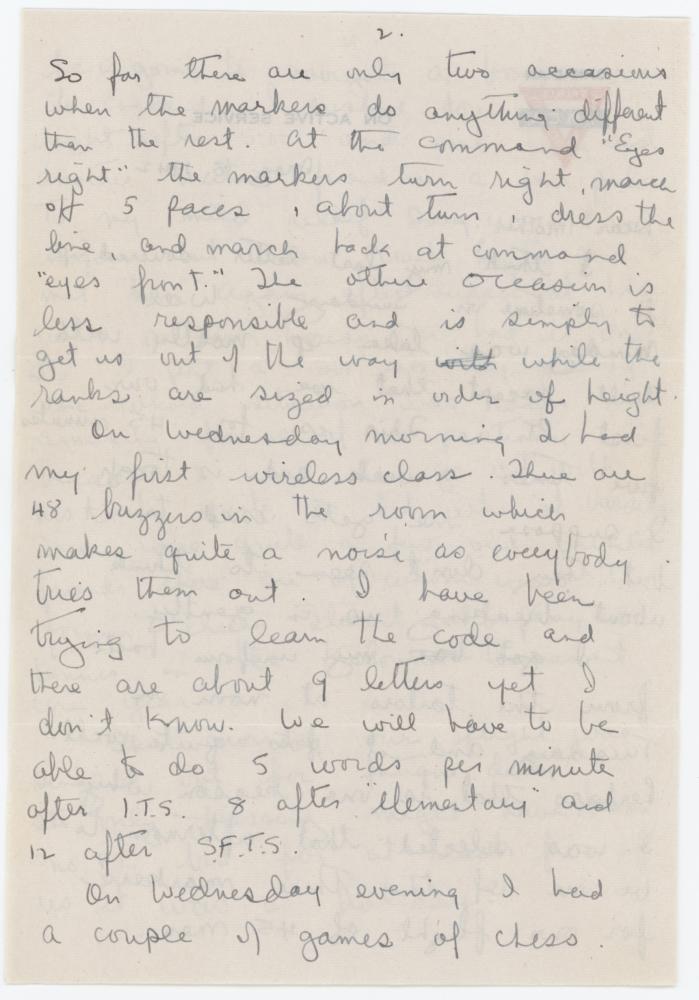 2.
So far there are only two occasions
when the markers do anything different
than the rest. At the command "Eyes
right" the markers turn right, march
off 5 paces, about turn, dress the
line, and march back at command
"eyes front." The other occasion is
less responsible and is simply to
get us out of the way with while the
ranks are sized in order of height.
On Wednesday morning I had
my first wireless class. There are
48 buzzers in the room which
makes quite a noise as everybody
tries them out. I have been
trying to learn the code and
there are about 9 letters yet I
don't know. We will have to be
able to do 5 words per minute
after I.T.S. 8 after "Elementary" and
12 after S.F.T.S.
On Wednesday evening I had
a couple of games of chess.
ON ACTIVE SERVICE